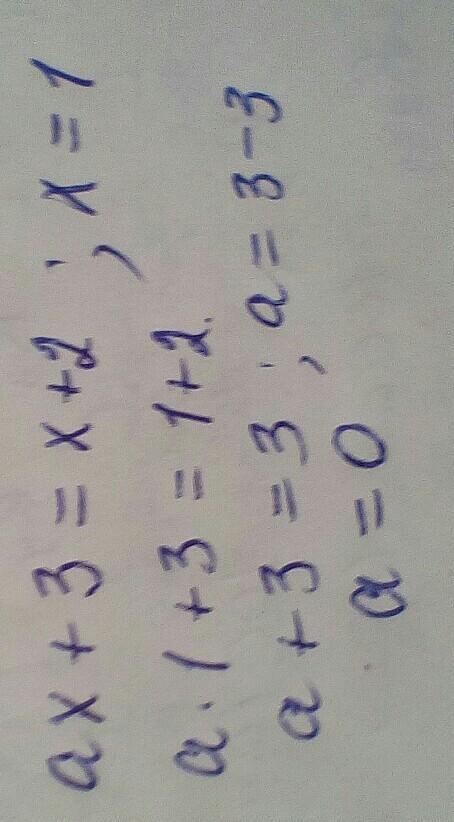 ax + 3 = x + 2 ; x = 1
a · 1 + 3 = 1 + 2
a + 3 = 3 ; a = 3 - 3
a = 0